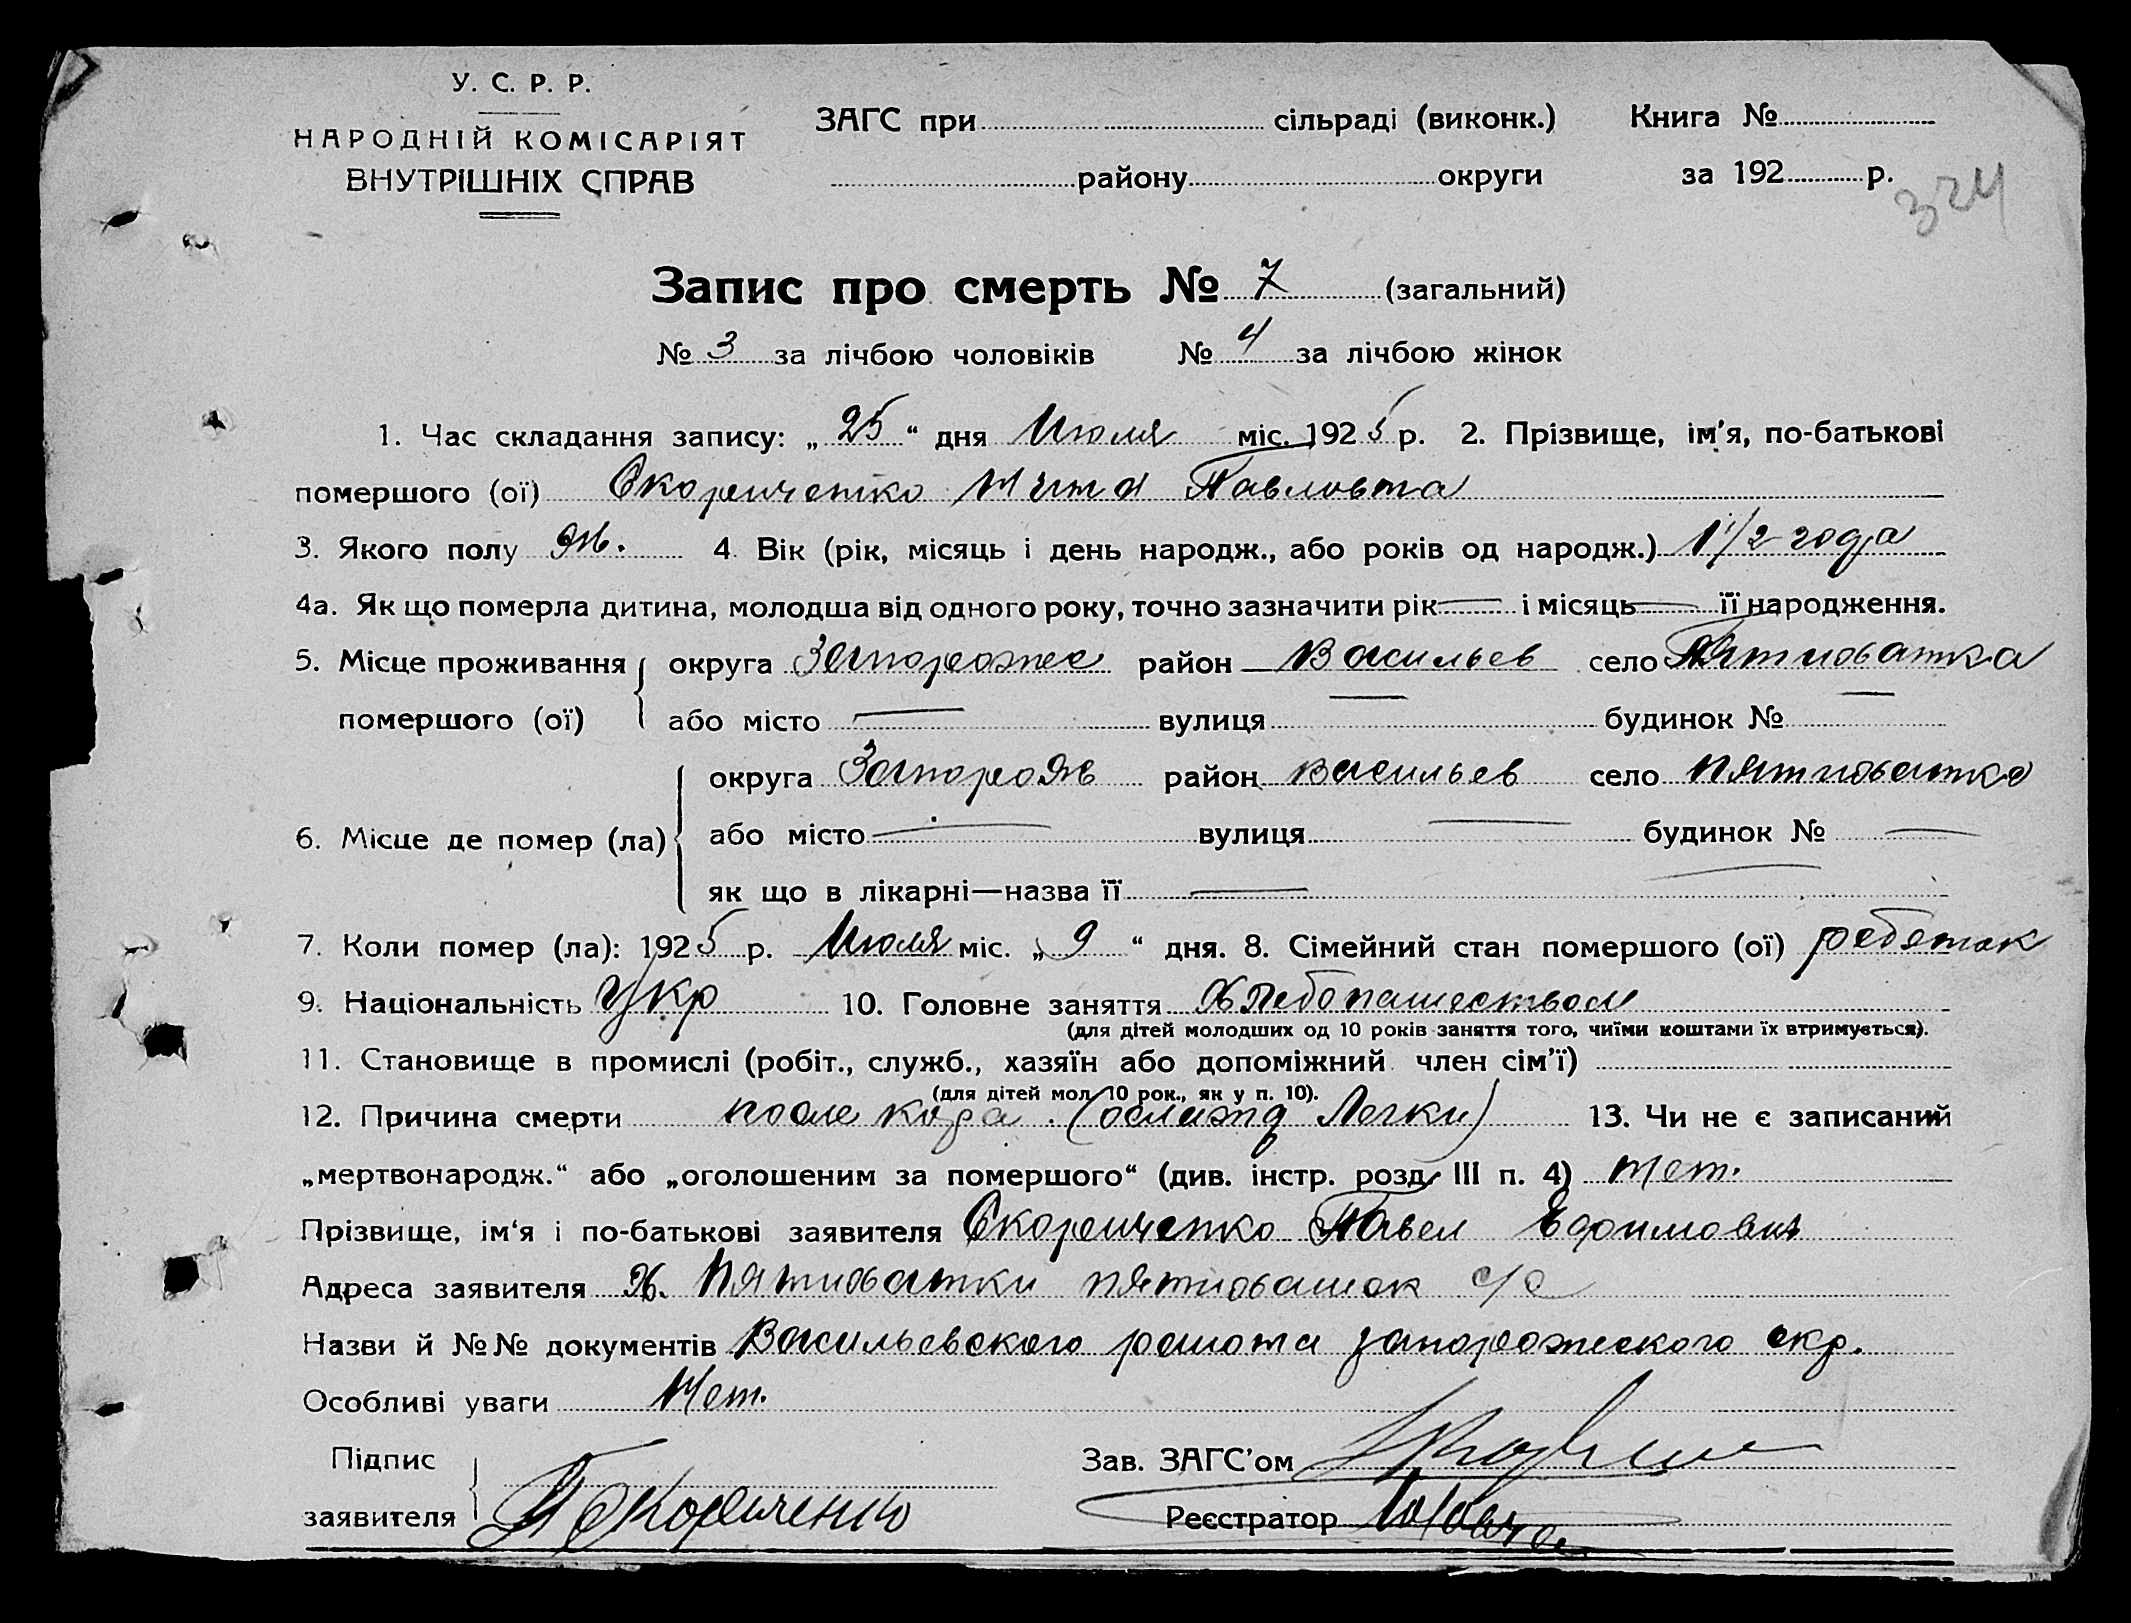 У. С. Р. Р.
НАРОДНІЙ КОМІСАРІЯТ
ВНУТРІШНІХ СПРАВ
ЗАГС при сільраді (виконк.) Книга №
району округи за 192 р.
324
Запис про смерть № 7 (загальний)
№ 3 за лічбою чоловіків № 4 за лічбою жінок
1. Час складання запису: „25“ дня Июля міс. 1925 р. 2. Прізвище, ім'я, по-батькові
помершого (ої) Скориченко Нина Павловна
3. Якого полу Ж. 4. Вік (рік, місяць і день народж., або років од народж.) 1 1/2 года
4а. Як що померла дитина, молодша від одного року, точно зазначити рік — і місяць — її народження.
5. Місце проживання округа Запорожс район Васильев село Пятихатка
помершого (ої) або місто — вулиця — будинок № —
округа Запорож район Васильев село Пятихатка
6. Місце де помер (ла) або місто — вулиця — будинок № —
як що в лікарні—назва її —
7. Коли помер (ла): 1925 р. Июля міс. „9“ дня. 8. Сімейний стан помершого (ої) ребенок
9. Національність Укр 10. Головне заняття Хлебопашеством
(для дітей молодших од 10 років заняття того, чиїми коштами їх втримується).
11. Становище в промислі (робіт., служб., хазяїн або допоміжний член сім'ї)
(для дітей мол. 10 рок., як у п. 10).
12. Причина смерти после кора 13. Чи не є записаний
„мертвонародж.“ або „оголошеним за помершого“ (див. інстр. розд. III п. 4) Нет.
Прізвище, ім'я і по-батькові заявителя Скориченко Павел Ефимович
Адреса заявителя Х. Пятихатки с/с
Назви й №№ документів Васильевского района запорожского окр.
Особливі уваги Нет.
Підпис Зав. ЗАГС'ом
заявителя П Скориченко Реєстратор